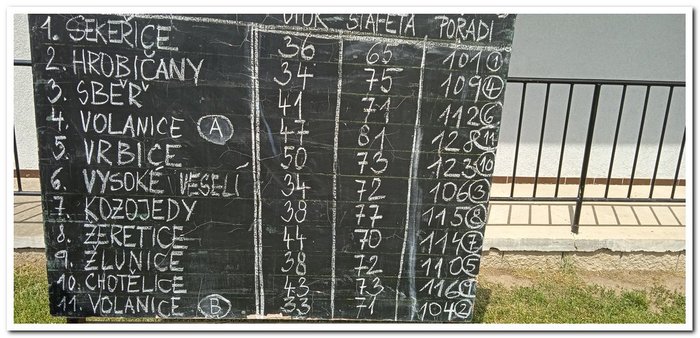 ÚTOK ŠTAFETA POŘADÍ
1. SEKEŘICE 36 65 101 1
2. HROBIČANY 34 75 109 4
3. SBĚŘ 41 71 112 6
4. VOLANICE A 47 81 128 11
5. VRBICE 50 73 123 10
6. VYSOKÉ VESELÍ 34 72 106 3
7. KOZOJEDY 38 77 115 8
8. ŽERETICE 44 70 114 7
9. ŽLUNICE 38 72 110 5
10. CHOTĚLICE 43 73 116 9
11. VOLANICE B 33 71 104 2